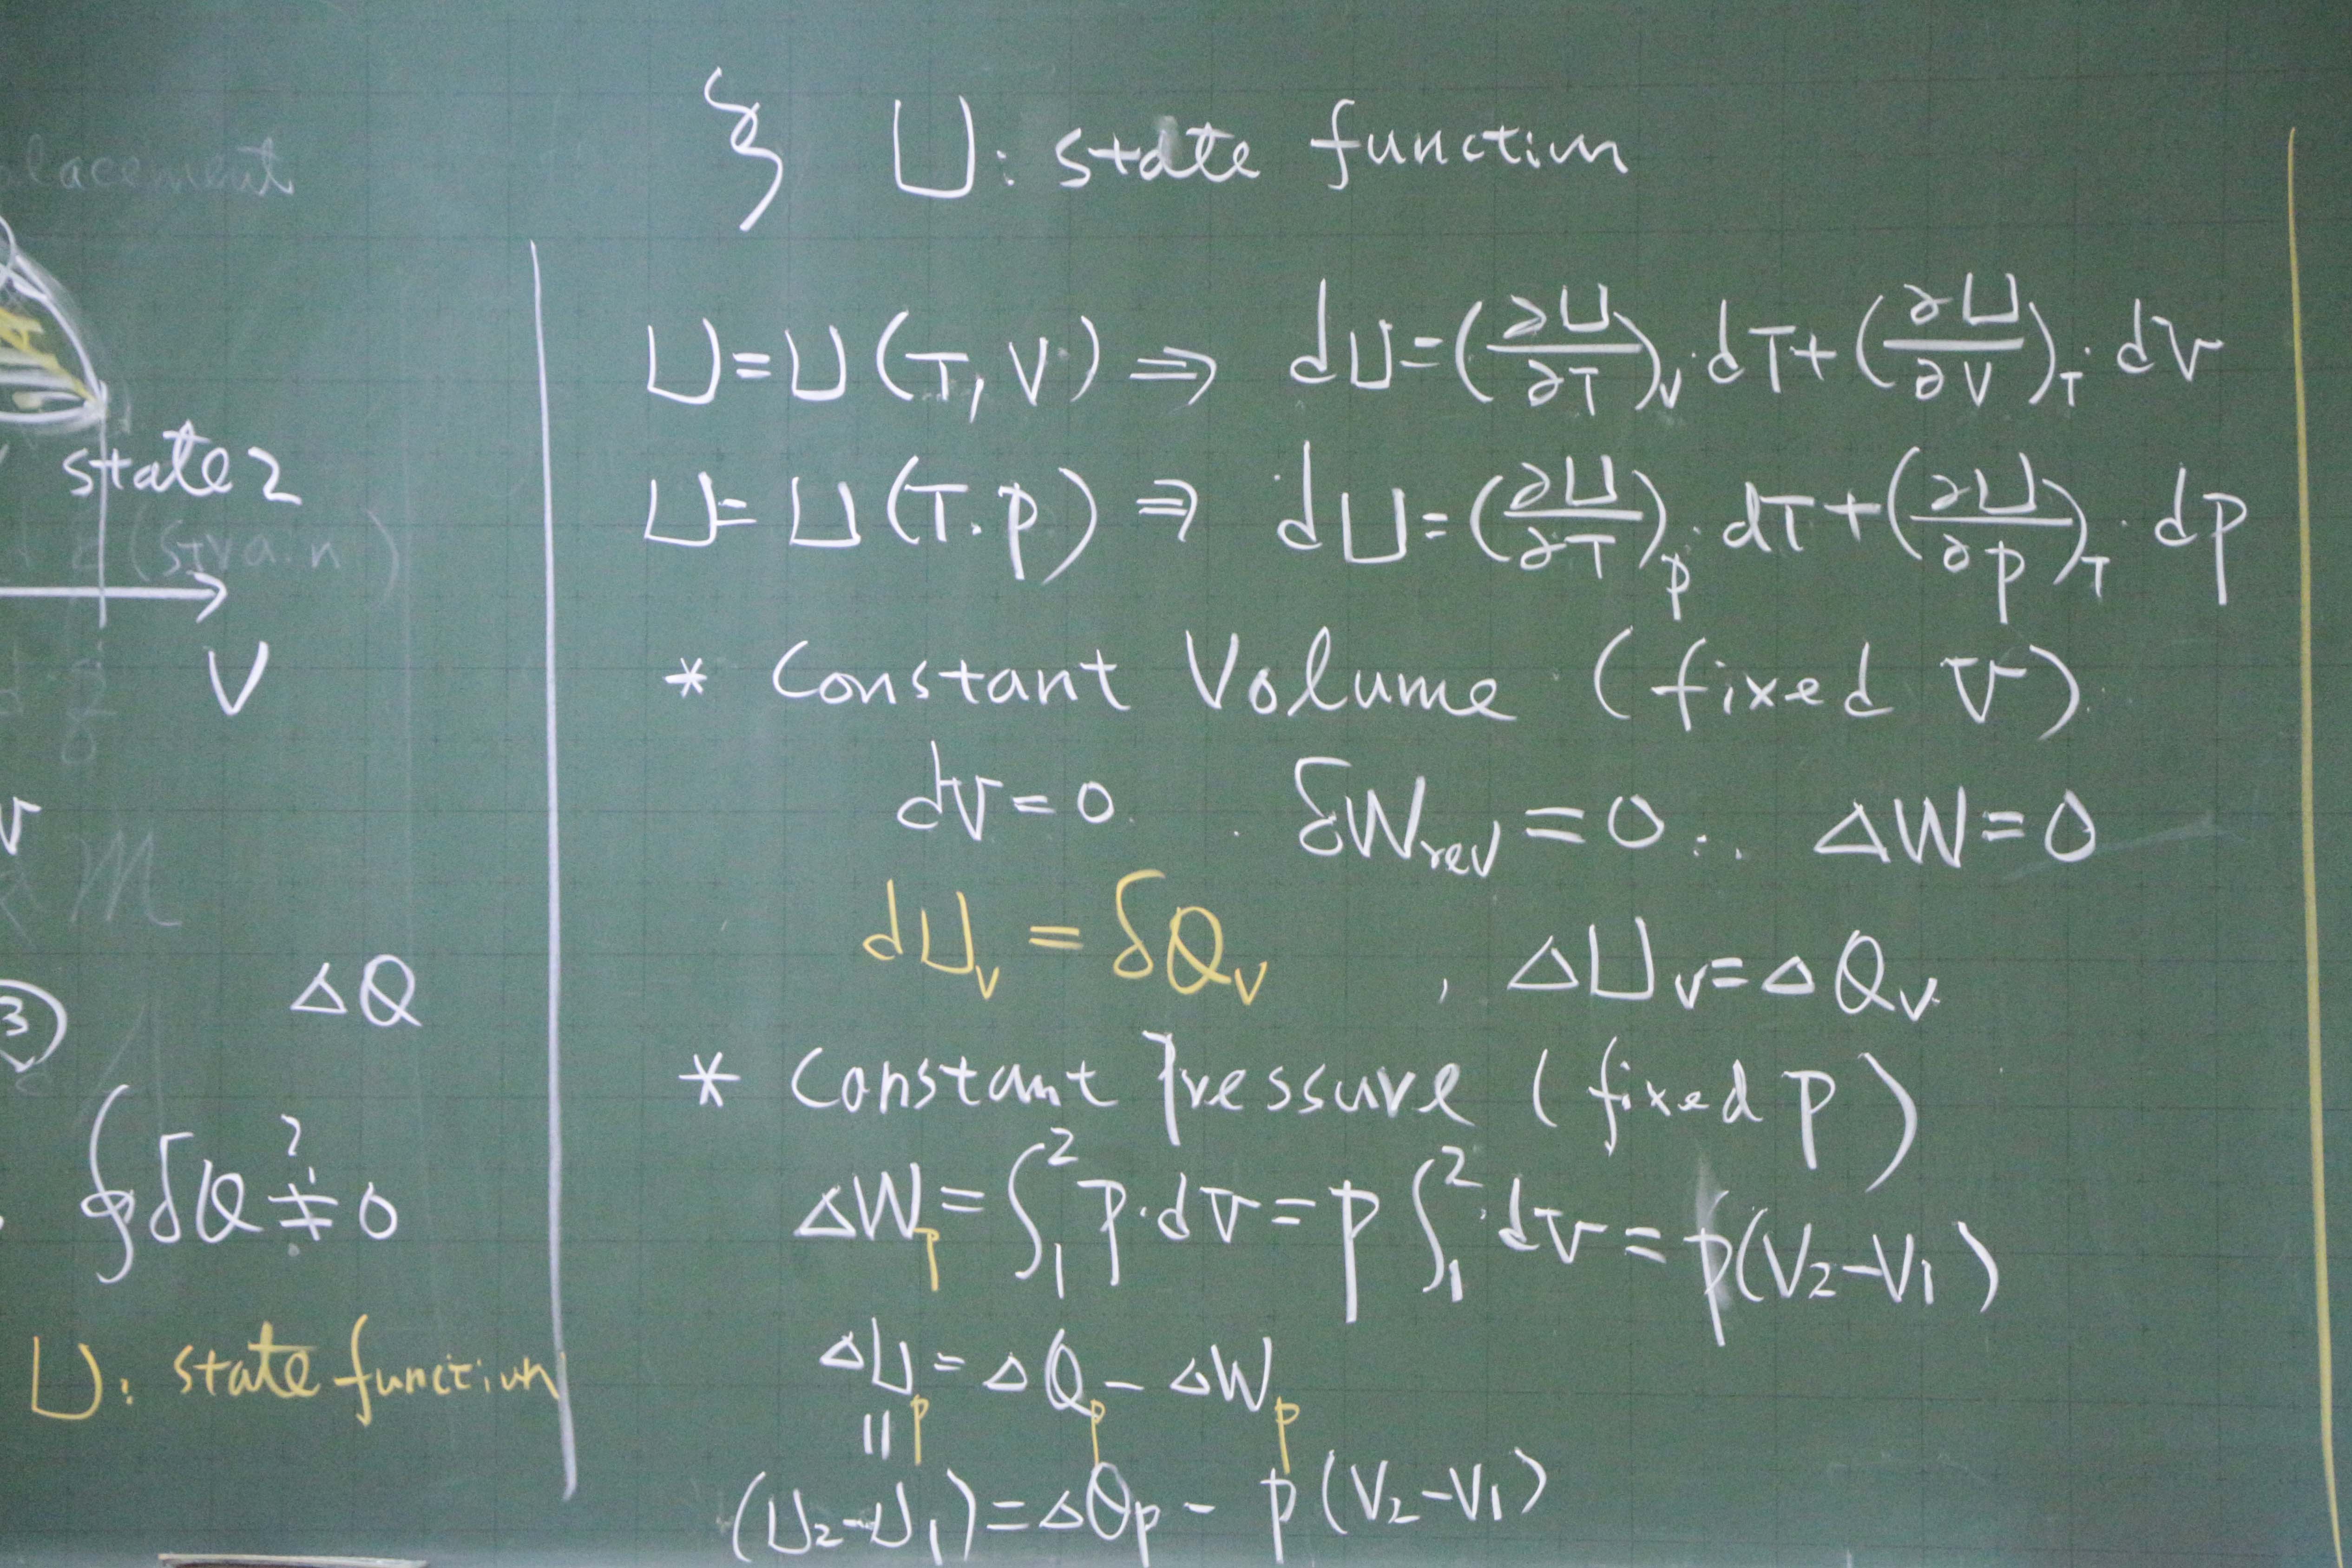 lacement
state 2
(strain)
V
ΔQ
③
∮δQ ≟ ≠ 0
U: state function
§ U: state function
U=U(T,V) ⇒ dU=(∂U/∂T)_V·dT+(∂U/∂V)_T·dV
U=U(T.p) ⇒ dU=(∂U/∂T)_p·dT+(∂U/∂p)_T·dp
* Constant Volume (fixed V).
dV=0. δW_rev=0 ∴ ΔW=0
dU_V=δQ_V , ΔU_V=ΔQ_V
* Constant Pressure (fixed P)
ΔW_p=∫₁²P·dV=P∫₁²dV=p(V₂-V₁)
ΔU_p=ΔQ_p-ΔW_p
||
(U₂-U₁)=ΔQ_p-p(V₂-V₁)